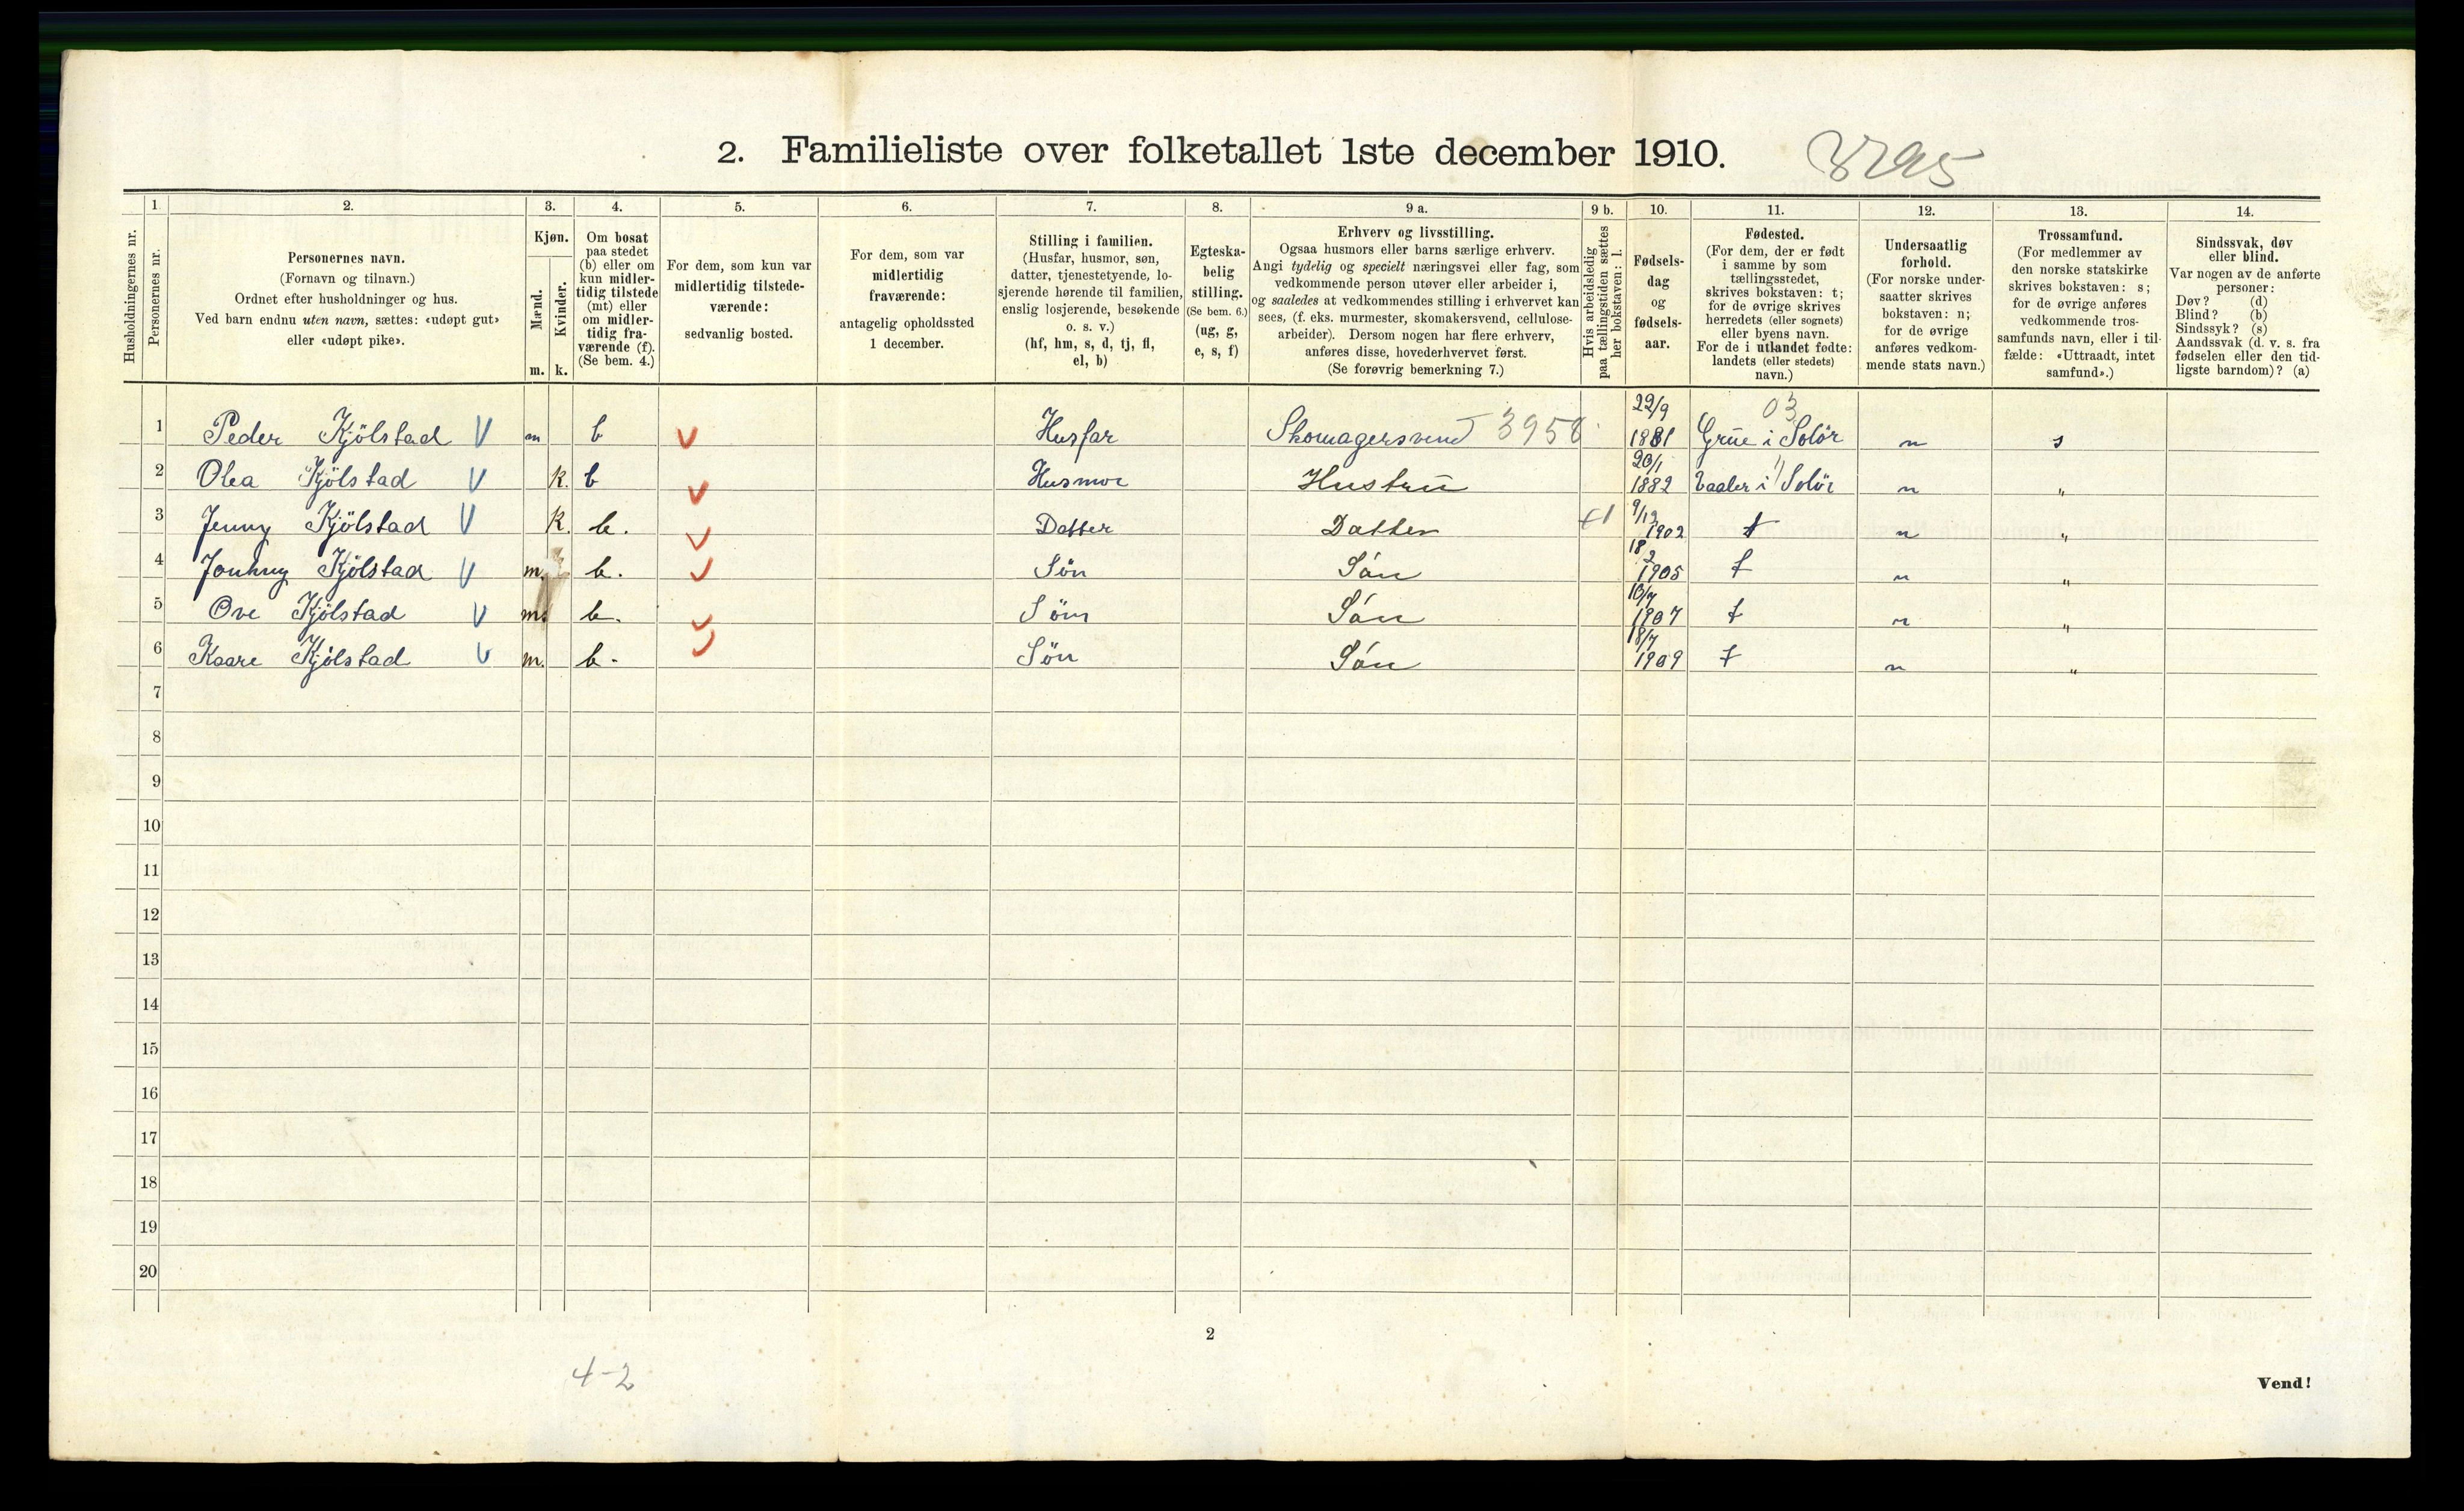 2. Familieliste over folketallet 1ste december 1910. 3295
Husholdningernes nr.
1. Personernes nr.
2. Personernes navn.
(Fornavn og tilnavn.)
Ordnet efter husholdninger og hus.
Ved barn endnu uten navn, sættes: «udøpt gut»
eller «udøpt pike».
3. Kjøn.
Mænd. m.
Kvinder. k.
4. Om bosat
paa stedet
(b) eller om
kun midler-
tidig tilstede
(mt) eller
om midler-
tidig fra-
værende (f).
(Se bem. 4.)
5. For dem, som kun var
midlertidig tilstede-
værende:
sedvanlig bosted.
6. For dem, som var
midlertidig
fraværende:
antagelig opholdssted
1 december.
7. Stilling i familien.
(Husfar, husmor, søn,
datter, tjenestetyende, lo-
sjerende hørende til familien,
enslig losjerende, besøkende
o. s. v.)
(hf, hm, s, d, tj, fl,
el, b)
8. Egteska-
belig
stilling.
(Se bem. 6.)
(ug, g,
e, s, f)
9 a. Erhverv og livsstilling.
Ogsaa husmors eller barns særlige erhverv.
Angi tydelig og specielt næringsvei eller fag, som
vedkommende person utøver eller arbeider i,
og saaledes at vedkommendes stilling i erhvervet kan
sees, (f. eks. murmester, skomakersvend, cellulose-
arbeider). Dersom nogen har flere erhverv,
anføres disse, hovederhvervet først.
(Se forøvrig bemerkning 7.)
9 b. Hvis arbeidsledig
paa tællingstiden sættes
her bokstaven: l.
10. Fødsels-
dag
og
fødsels-
aar.
11. Fødested.
(For dem, der er født
i samme by som
tællingsstedet,
skrives bokstaven: t;
for de øvrige skrives
herredets (eller sognets)
eller byens navn.
For de i utlandet fødte:
landets (eller stedets)
navn.)
12. Undersaatlig
forhold.
(For norske under-
saatter skrives
bokstaven: n;
for de øvrige
anføres vedkom-
mende stats navn.)
13. Trossamfund.
(For medlemmer av
den norske statskirke
skrives bokstaven: s;
for de øvrige anføres
vedkommende tros-
samfunds navn, eller i til-
fælde: «Uttraadt, intet
samfund».)
14. Sindssvak, døv
eller blind.
Var nogen av de anførte
personer:
Døv? (d)
Blind? (b)
Sindssyk? (s)
Aandssvak (d. v. s. fra
fødselen eller den tid-
ligste barndom)? (a)
1 Peder Kjölstad V m b V Husfar Skomagersvend 3958 22/9 1881 03 Grue i Solör n s
2 Olea Kjölstad V k. b V Husmor Hustru 20/1 1882 Vaaler i Solör n "
3 Jenny Kjölstad V k. b. V Datter Datter +1 9/12 1902 t n "
4 Jonhny Kjölstad V m. b. V Sön Són 18/2 1905 t n "
5 Ove Kjölstad V m. b. V Söm Són 10/7 1907 t n "
6 Kaare Kjölstad V m. b. V Søn Són 18/7 1909 t n "
7
8
9
10
11
12
13
14
15
16
17
18
19
20
2
4-2
Vend!